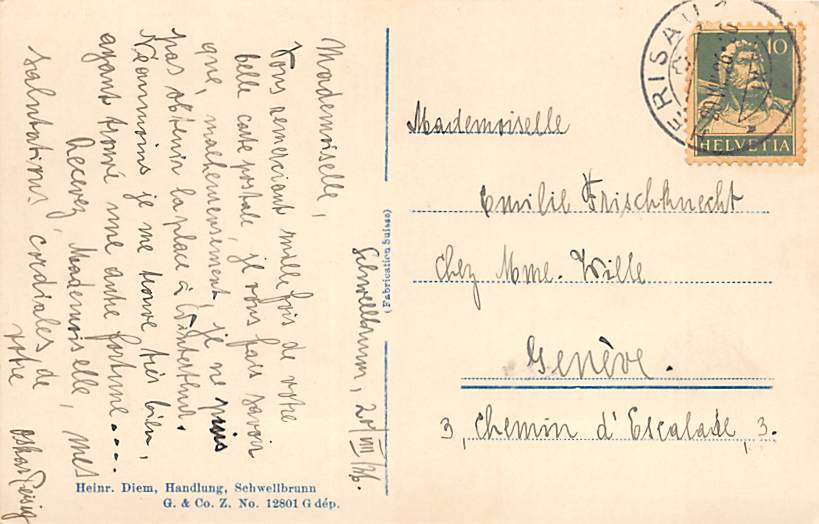 Schwellbrunn, 20/VIII/26.
Mademoiselle,
Vous remerciant mille fois de votre
belle carte postale, je vous fais savoir
que, malheureusement, je ne puis
pas obtenir la place à Winterthur.
Néanmoins je me trouve très bien,
ayant trouvé une autre fortune....
Recevez, Mademoiselle, mes
salutations cordiales de
votre Oskar
Heinr. Diem, Handlung, Schwellbrunn
G. & Co. Z. No. 12801 G dép.
(Fabrication Suisse)
HERISAU
10
HELVETIA
Mademoiselle
Emilie Frischknecht
chez Mme. Wille
Genève.
3, Chemin d'Escalade, 3.